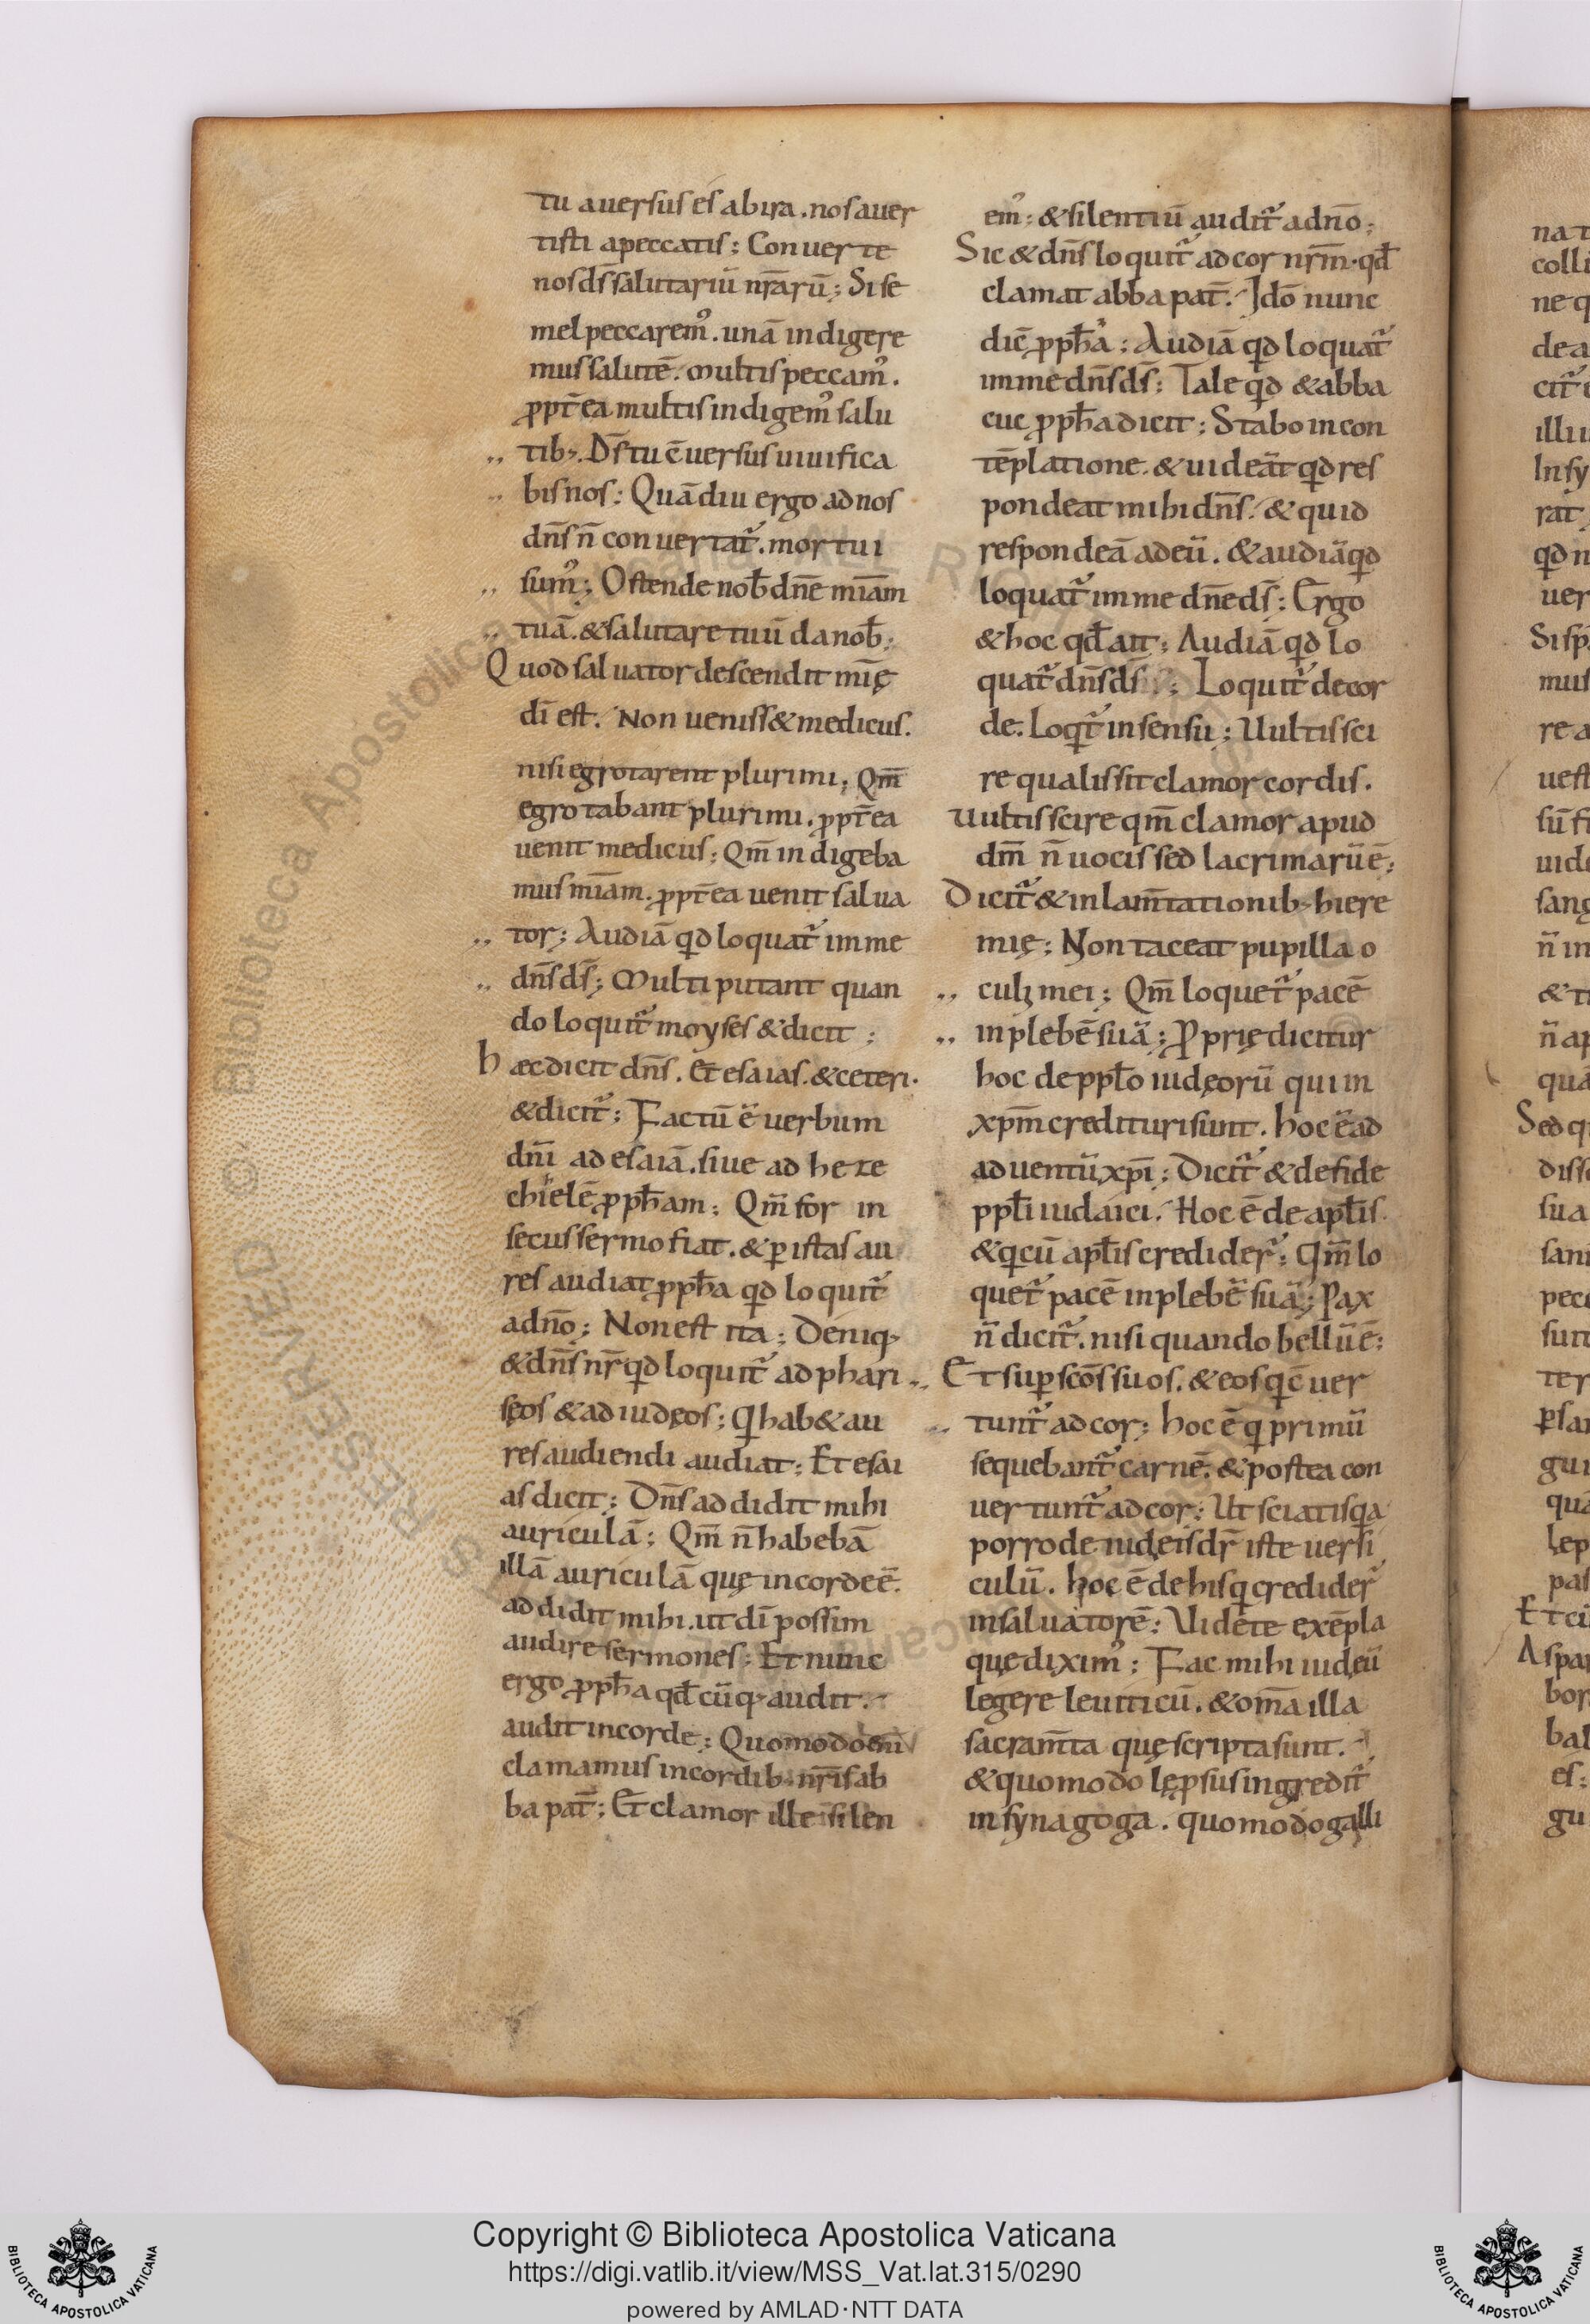 tu auersus es ab ira. nos auer
tisti a peccatis; Conuerte
nos ds̄ salutariū nr̄arū; Si se
mel peccarem᾽. unā indigere
mus salutē. multis peccam᾽.
ꝓpt̄ea multis indigem᾽ salu
,, tib;. Ds̄ tu c̄uersus uiuifica
,, bis nos; Quādiu ergo ad nos
dn̄s n̄ conuertat᾽. mortui
,, sum᾽; Ostende nob̄ dn̄e mīam
,, tuā. & salutare tuū da nob̄;
Quod saluator descendit mīę
dī est. Non ueniss& medicus.
nisi egrotarent plurimi; Qm̄
egrotabant plurimi. ꝓpt̄ea
uenit medicus; Qm̄ indigeba
mus mīam. ꝓpt̄ea uenit salua
,, tor; Audiā qd loquat᾽ in me
,, dn̄s ds̄; Multi putant quan
do loquit᾽ moyses & dicit;
Hæc dicit dn̄s. Et esaias. & ceteri.
& dicit᾽; Factū ē uerbum
dn̄i ad esaiā. siue ad heze
chielē ꝓph̄am; Qm̄ for in
secus sermo fiat. & ꝑ istas au
res audiat ꝓph̄a qd loquit᾽
a dn̄o; Non est ita; Deniq;
& dn̄s nr̄ qd loquit᾽ ad phari
sęos & ad iudęos; Qi hab& au
res audiendi audiat; Et esai
as dicit; Dn̄s addidit mihi
auriculā; Qm̄ n̄ habebā
illā auriculā quę in corde ē.
addidit mihi. ut dī possim
audire sermones; Et nunc
ergo ꝓph̄a qd̄ cūq; audit.
audit in corde; Quomodo eni
clamamus in cordib; nr̄is ab
ba pat̄; Et clamor ille silen
em᾽; & silentiū audit᾽ a dn̄o;
Sic & dn̄s loquit᾽ ad cor nr̄m. qd̄
clamat abba pat̄. Idō nunc
dic̄ ꝓph̄a; Audiā qd loquat᾽
in me dn̄s ds̄; Tale qd & abba
cuc ꝓph̄a dicit; Stabo in con
tēplatione. & uideā qd res
pondeat mihi dn̄s. & quid
respondeā ad eū. & audiā qd
loquat᾽ in me dn̄e ds̄; Ergo
& hoc qd̄ ait; Audiā qd lo
quat᾽ dn̄s ds̄; Loquit᾽ de cor
de. Loqt᾽ in sensu; Uultis sci
re qualis sit clamor cordis.
Uultis scire qm̄ clamor apud
dm̄ n̄ uocis sed lacrimarū ē;
Dicit᾽ & in lam̄tationib; hiere
mię; Non taceat pupilla o
,, culi mei; Qm̄ loquet᾽ pacē
,, in plebē suā; Proprię dicitur
hoc de ppl̄o iudęorū qui in
xpm̄ credituri sunt. hoc ē ad
aduentū xpī; Dicit᾽ & de fide
ppl̄i iudaici. Hoc ē de apl̄is
& q cū apl̄is credider᾽; Qm̄ lo
quet᾽ pacē in plebē suā; Pax
n̄ dicit᾽. nisi quando bellū ē;
,, Et suꝑ scōs suos. & eos q c̄uer
,, tunt᾽ ad cor; hoc ē q primū
sequebant᾽ carnē. & postea con
uertunt᾽ ad cor; Ut sciatis qa
porro de iudęis dr̄ iste uersi
culū. hoc ē de his q credider᾽
in saluatorē; Uidete exēpla
quę dixim᾽; Fac mihi iudęū
legere leuiticū. & om̄a illa
sacram̄ta quę scripta sunt.
& quomodo lęprosus ingredit᾽
in synagoga. quomodo galli
Copyright © Biblioteca Apostolica Vaticana
https://digi.vatlib.it/view/MSS_Vat.lat.315/0290
powered by AMLAD·NTT DATA
BIBLIOTECA APOSTOLICA VATICANA
BIBLIOTECA APOSTOLICA VATICANA